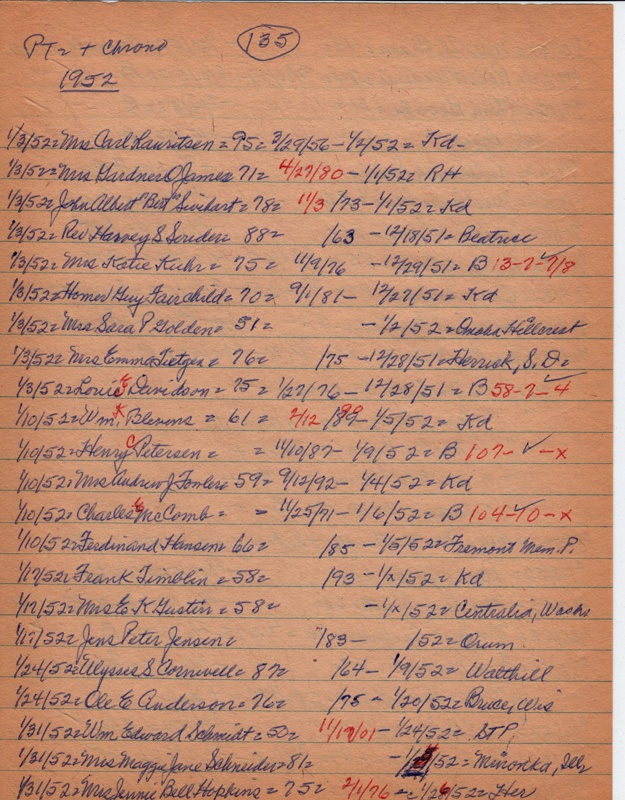 PT = + Chrono
135
1952
1/3/52 = Mrs Carl Lauritsen = 95 = 3/29/56 - 1/2/52 = Kd -
1/3/52 = Mrs Gardner O James 71 = 4/27/80 - 1/1/52 = RH
1/3/52 = John Albert "Bert" = 78 = 11/3 /73 - 1/1/52 = Kd
1/3/52 = Rev Harvey S 88 = /63 - 12/18/51 = Beatrice
1/3/52 = Mrs Katie Kuhr = 75 = 11/9/76 - 12/29/51 = B 13-7-7/8
1/3/52 = Homer Guy Fairchild = 70 = 9/1/81 - 12/27/51 = Kd
1/3/52 = Mrs Sara P Golden = 51 = - 1/2/52 = Omaha Hillcrest
1/3/52 = Mrs Emma Tietgen = 76 = /75 - 12/28/51 = Herrick, S.D. =
1/3/52 = Louis E Davidson = 75 = 1/27/76 - 12/28/51 = B 58-7-4
1/10/52 = Wm. K Blevens = 61 = 2/12 /89 90 - 1/5/52 = Kd
1/10/52 = Henry C Petersen = = 11/10/87 - 1/9/52 = B 107- ✓ - x
1/10/52 = Mrs Andrew J Fowler = 59 = 9/12/92 - 1/4/52 = Kd
1/10/52 = Charles E McComb = = 11/25/71 - 1/6/52 = B 104-10-x
1/10/52 = Ferdinand Hansen = 66 = /85 - 1/5/52 = Fremont Mem. P.
1/17/52 = Frank Timblin = 58 = /93 - 1/x/52 = Kd
1/17/52 = Mrs E K Gustin = 58 = - 1/x/52 = Centralia, Washn
1/17/52 = Jens Peter Jensen = /83 - /52 = Orum
1/24/52 = Ulysses S Cornwell = 87 = /64 - 1/9/52 = Walthill
1/24/52 = Ole E Anderson = 76 = /75 - 1/20/52 = Bruce, Wis
1/31/52 = Wm Edward Schmidt = 50 = 11/19/01 - 1/24/52 = STP
1/31/52 = Mrs Maggie Jane Schneider = 81 = /52 = Minonka, Ills
1/31/52 = Mrs Jennie Bell Hopkins = 75 = 2/1/76 - 1/28/52 = Her